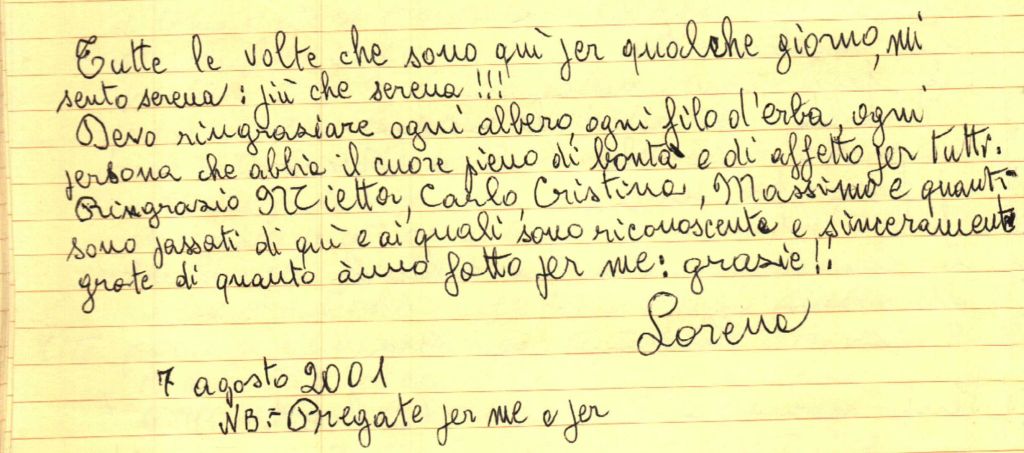 Tutte le volte che sono quì per qualche giorno, mi
sento serena: più che serena!!!
Devo ringraziare ogni albero, ogni filo d'erba, ogni
persona che abbia il cuore pieno di bontà e di affetto per tutti.
Ringrazio Mietta, Carlo, Cristina, Massimo e quanti
sono passati di quì e ai quali sono riconoscente e sinceramente
grate di quanto ànno fatto per me: grazie!!
Lorena
7 agosto 2001
NB:- Pregate per me e per